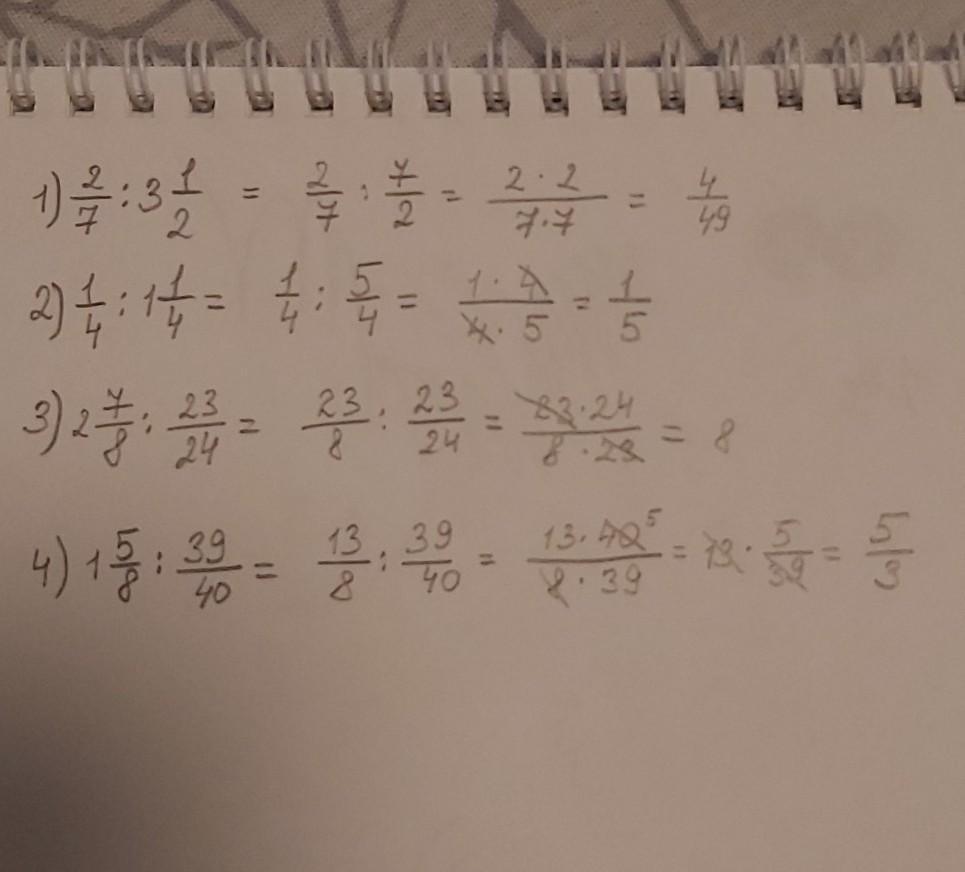 1) 2/7 : 3 1/2 = 2/7 : 7/2 = 2·2/7·7 = 4/49
2) 1/4 : 1 1/4 = 1/4 : 5/4 = 1·4/4·5 = 1/5
3) 2 7/8 : 23/24 = 23/8 : 23/24 = 23·24/8·23 = 8
4) 1 5/8 : 39/40 = 13/8 : 39/40 = 13·40 5/8·39 = 13 · 5/39 = 5/3